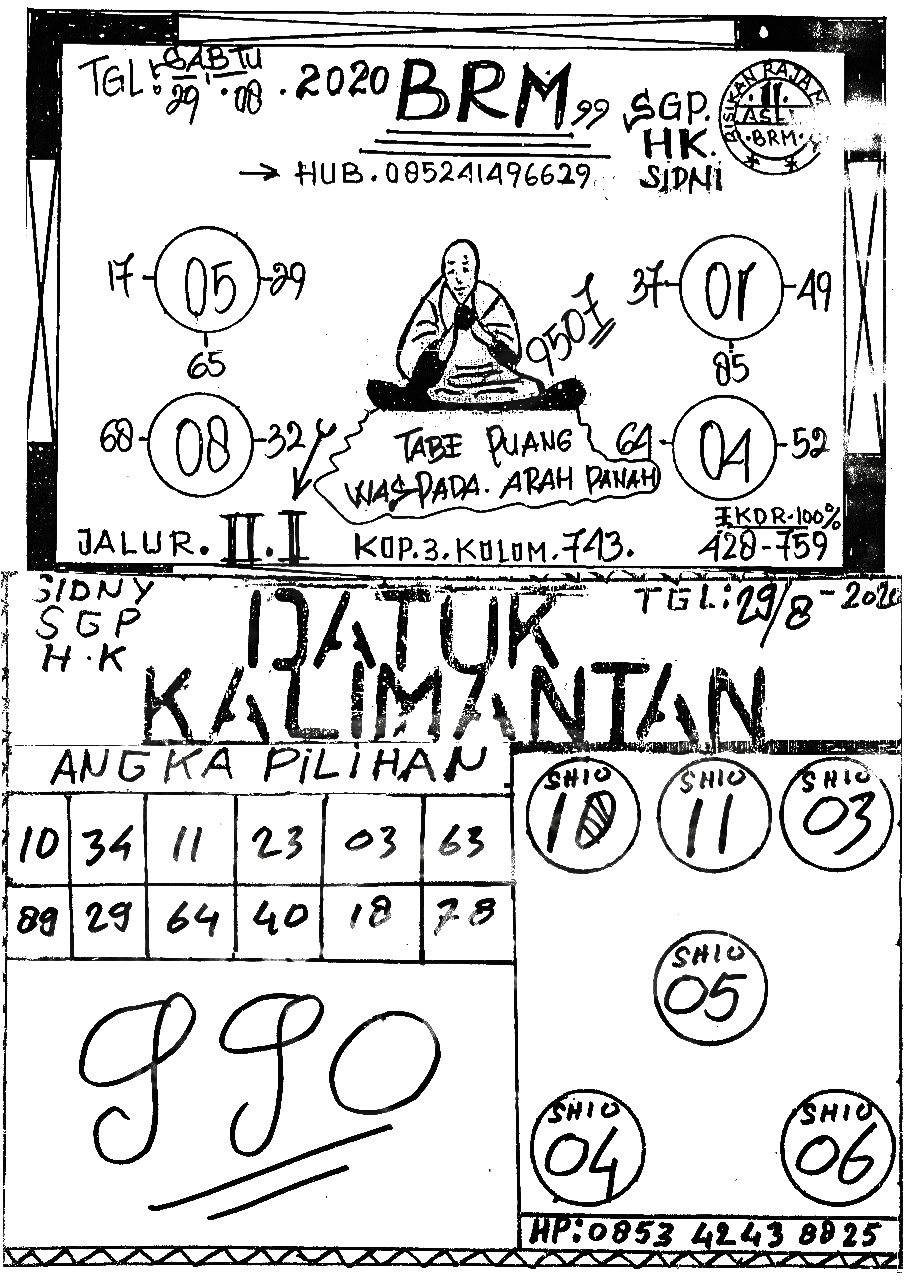 TGL: SABTU
29 . 08 . 2020
BRM 99
SGP.
HK.
SIDNI
BISIKAN RAJA
II
ASLI
BRM
→ HUB. 085241496629
17 - 05 - 29
65
37 - 01 - 49
85
9507
68 - 08 - 32
64 - 04 - 52
TABE PUANG
WASPADA. ARAH PANAH
JALUR. II. I
KOP. 3. KOLOM. 743.
EKOR. 100%
428-759
SIDNY
SGP
H.K
DATUK
KALIMANTAN
TGL: 29/8-2020
ANGKA PILIHAN
10 34 11 23 03 63
89 29 64 40 18 78
990
SHIO
10
SHIO
11
SHIO
03
SHIO
05
SHIO
04
SHIO
06
HP: 0853 4243 8825